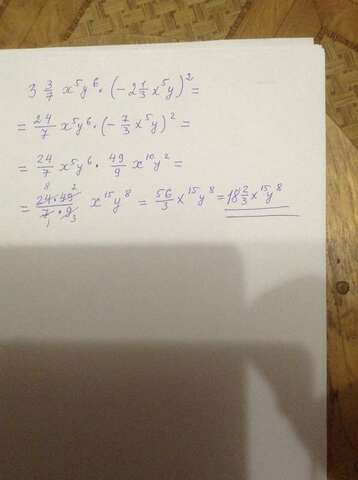 3 3/7 x⁵y⁶ · (-2 1/3 x⁵y)² =
= 24/7 x⁵y⁶ · (- 7/3 x⁵y)² =
= 24/7 x⁵y⁶ · 49/9 x¹⁰y² =
= 24·49/7·9 x¹⁵y⁸ = 56/3 x¹⁵y⁸ = 18 2/3 x¹⁵y⁸